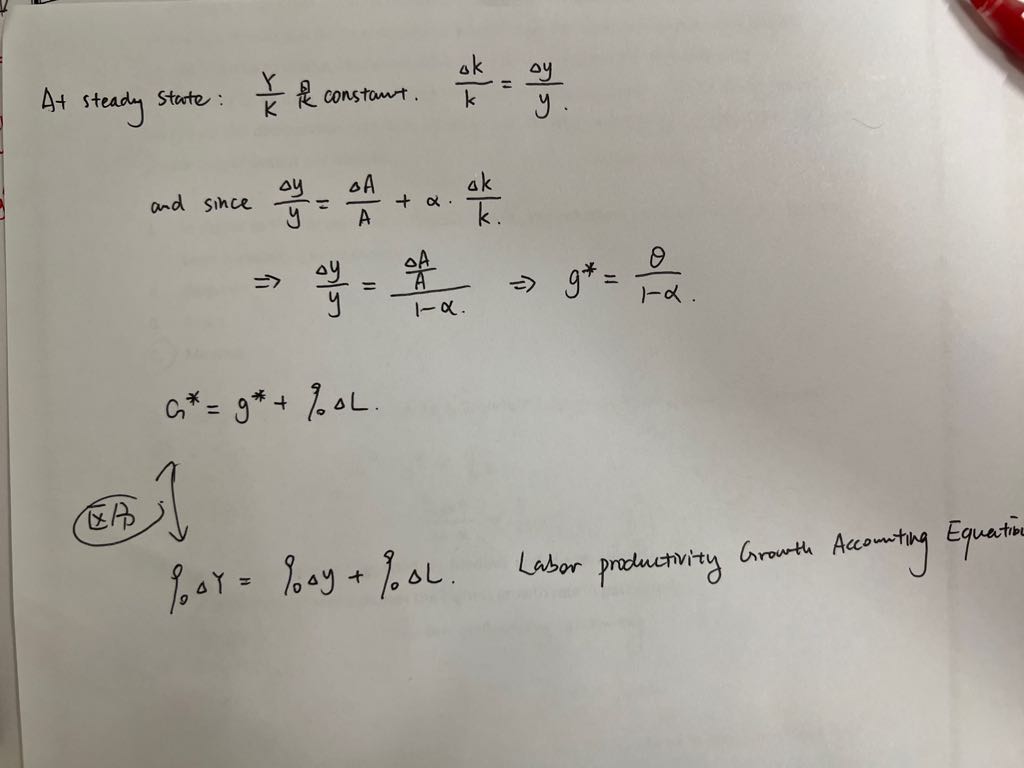 At steady state: Y/K constant. Δk/k = Δy/y.
and since Δy/y = ΔA/A + α · Δk/k.
⇒ Δy/y = (ΔA/A)/(1-α). ⇒ g* = θ/(1-α).
G* = g* + %ΔL.
区别
%ΔY = %Δy + %ΔL. Labor productivity Growth Accounting Equation